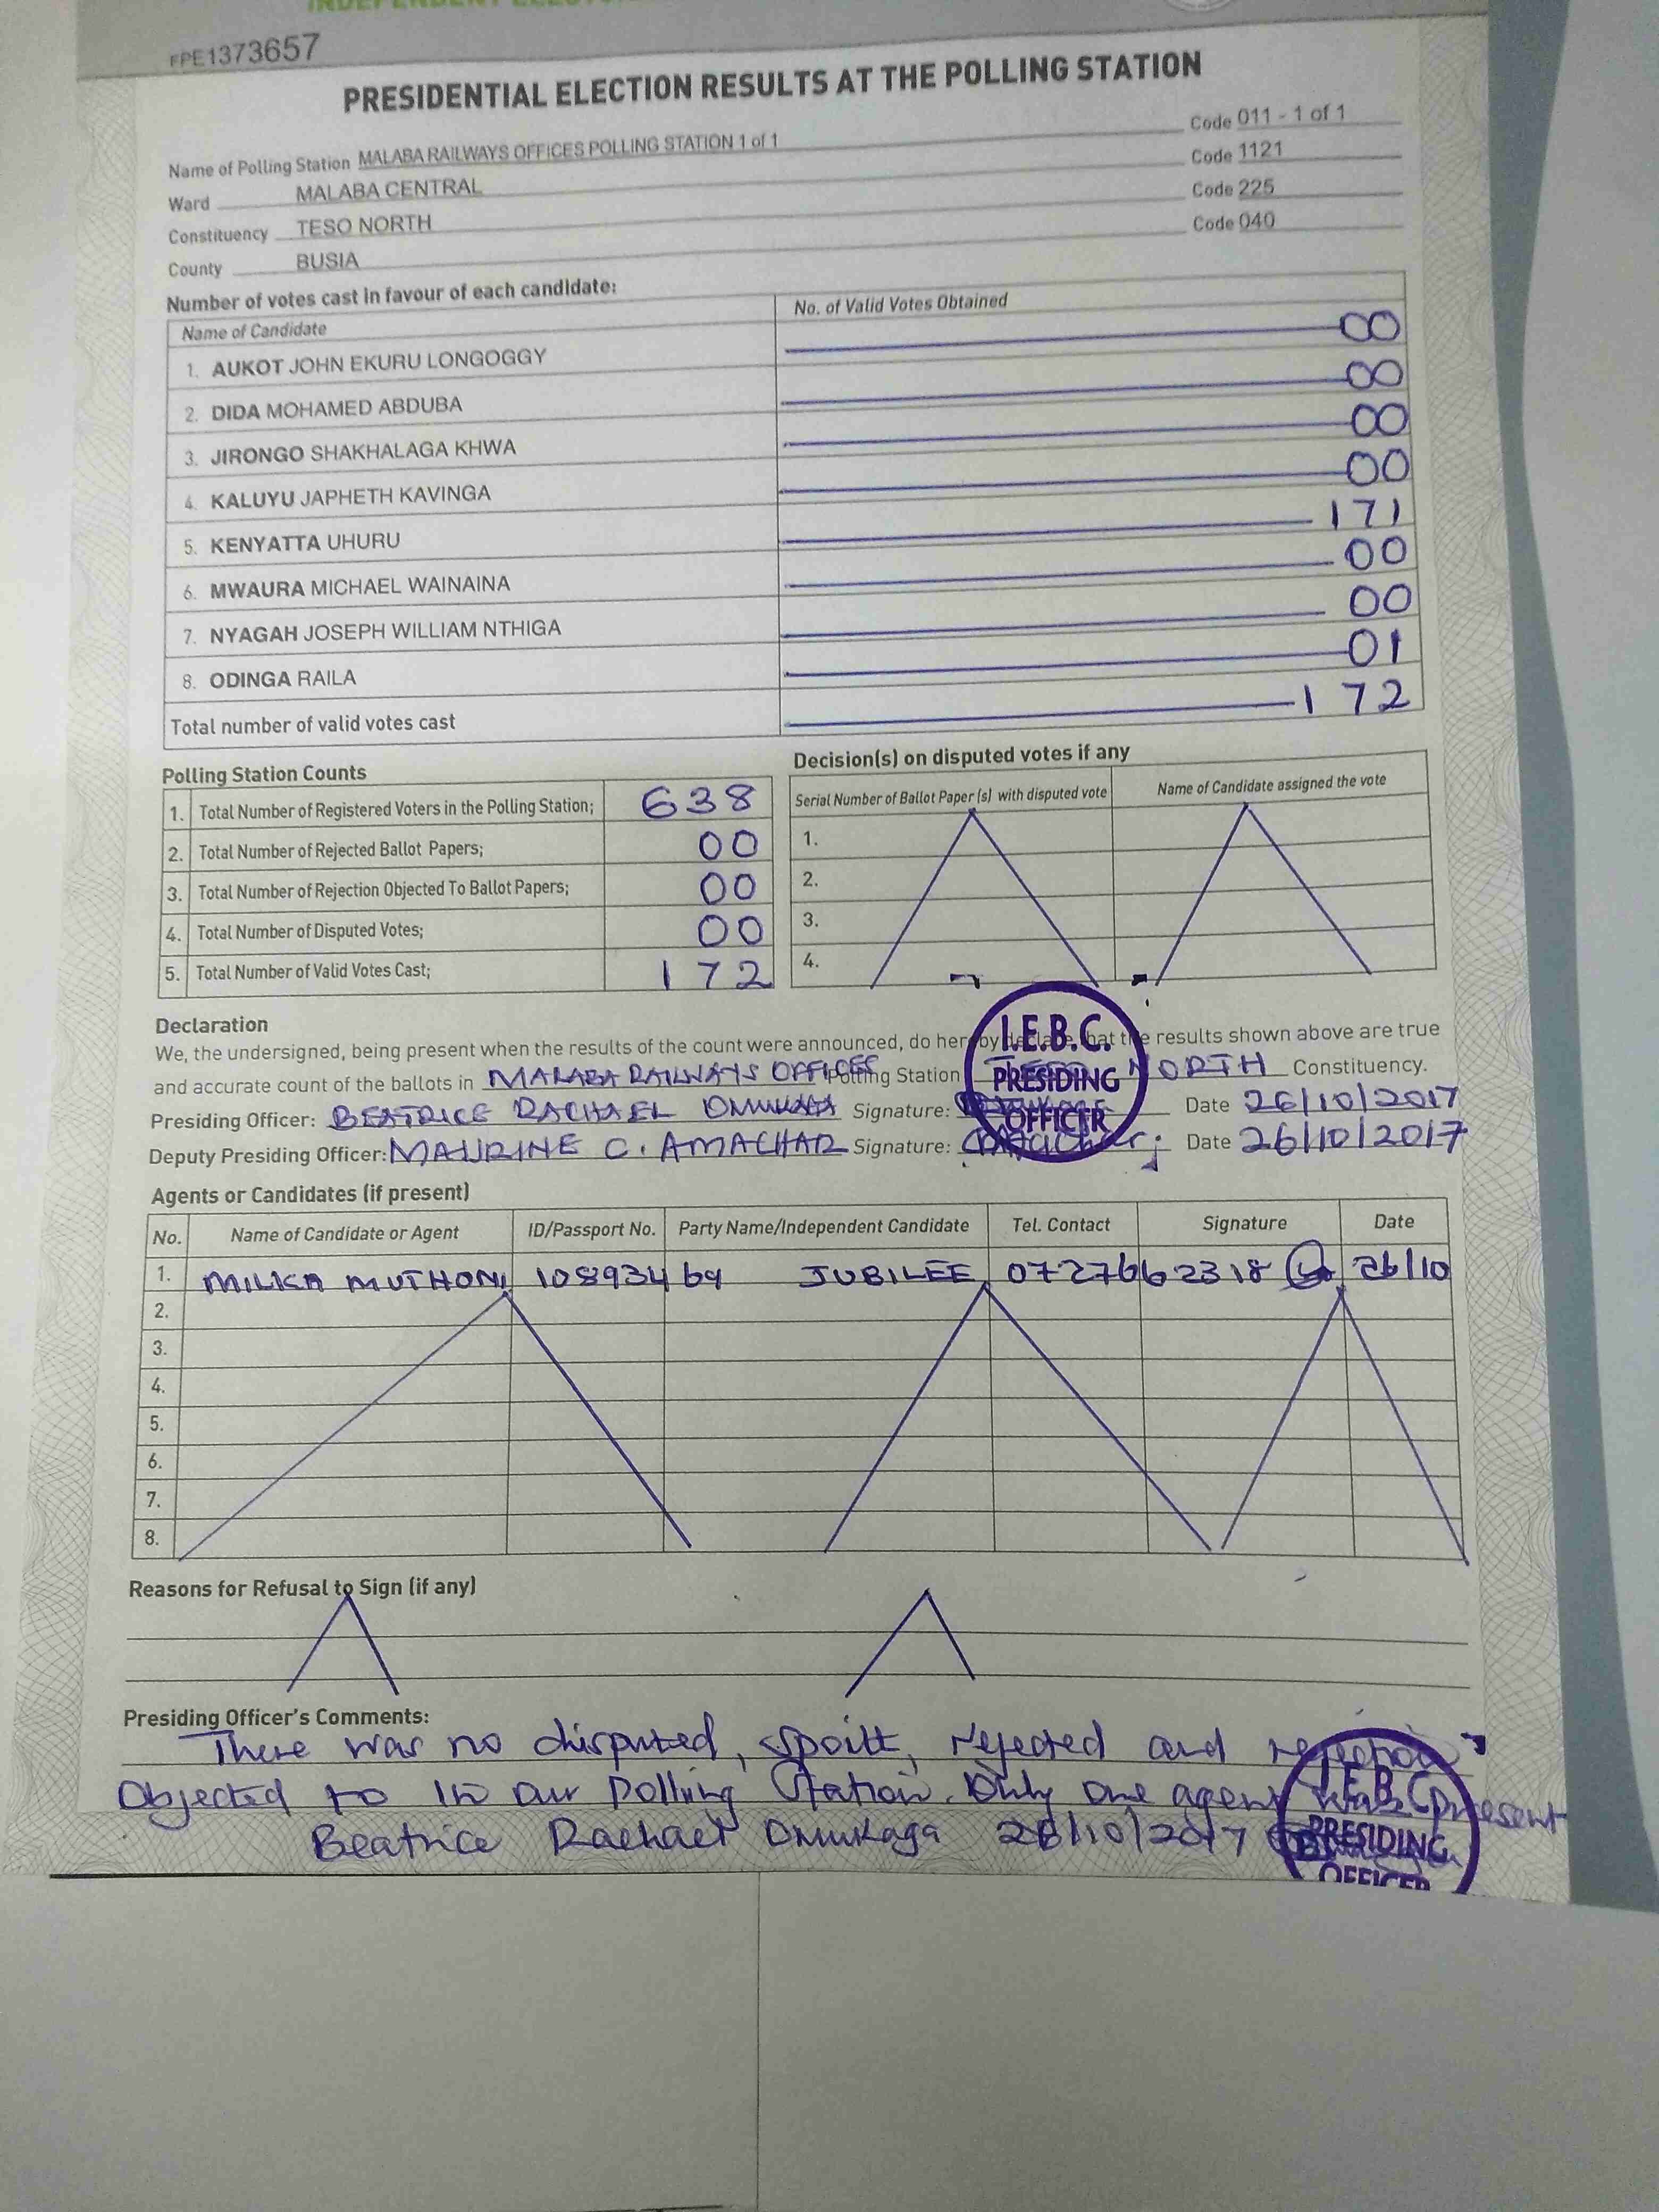 FPE1373657
PRESIDENTIAL ELECTION RESULTS AT THE POLLING STATION
Name of Polling Station MALABA RAILWAYS OFFICES POLLING STATION 1 of 1 Code 011 - 1 of 1
Ward MALABA CENTRAL Code 1121
Constituency TESO NORTH Code 225
County BUSIA Code 040
Number of votes cast in favour of each candidate:
Name of Candidate No. of Valid Votes Obtained
1. AUKOT JOHN EKURU LONGOGGY 00
2. DIDA MOHAMED ABDUBA 00
3. JIRONGO SHAKHALAGA KHWA 00
4. KALUYU JAPHETH KAVINGA 00
5. KENYATTA UHURU 171
6. MWAURA MICHAEL WAINAINA 00
7. NYAGAH JOSEPH WILLIAM NTHIGA 00
8. ODINGA RAILA 01
Total number of valid votes cast 172
Polling Station Counts
1. Total Number of Registered Voters in the Polling Station; 638
2. Total Number of Rejected Ballot Papers; 00
3. Total Number of Rejection Objected To Ballot Papers; 00
4. Total Number of Disputed Votes; 00
5. Total Number of Valid Votes Cast; 172
Decision(s) on disputed votes if any
Serial Number of Ballot Paper (s) with disputed vote Name of Candidate assigned the vote
1.
2.
3.
4.
Declaration
We, the undersigned, being present when the results of the count were announced, do hereby declare that the results shown above are true
and accurate count of the ballots in MALABA RAILWAYS OFFICES Polling Station NORTH Constituency.
Presiding Officer: BEATRICE RACHAEL OMUKAGA Signature: Date 26/10/2017
Deputy Presiding Officer: MAURINE C. AMACHAR Signature: Date 26/10/2017
I.E.B.C.
PRESIDING
OFFICER
Agents or Candidates (if present)
No. Name of Candidate or Agent ID/Passport No. Party Name/Independent Candidate Tel. Contact Signature Date
1. MILKA MUTHONI 10893469 JUBILEE 0727662318 26/10
2.
3.
4.
5.
6.
7.
8.
Reasons for Refusal to Sign (if any)
Presiding Officer's Comments:
There was no disputed, spoilt, rejected and rejection
Objected to in our Polling Station. Only one agent was present
Beatrice Rachael Omukaga 26/10/2017
I.E.B.C.
PRESIDING
OFFICER